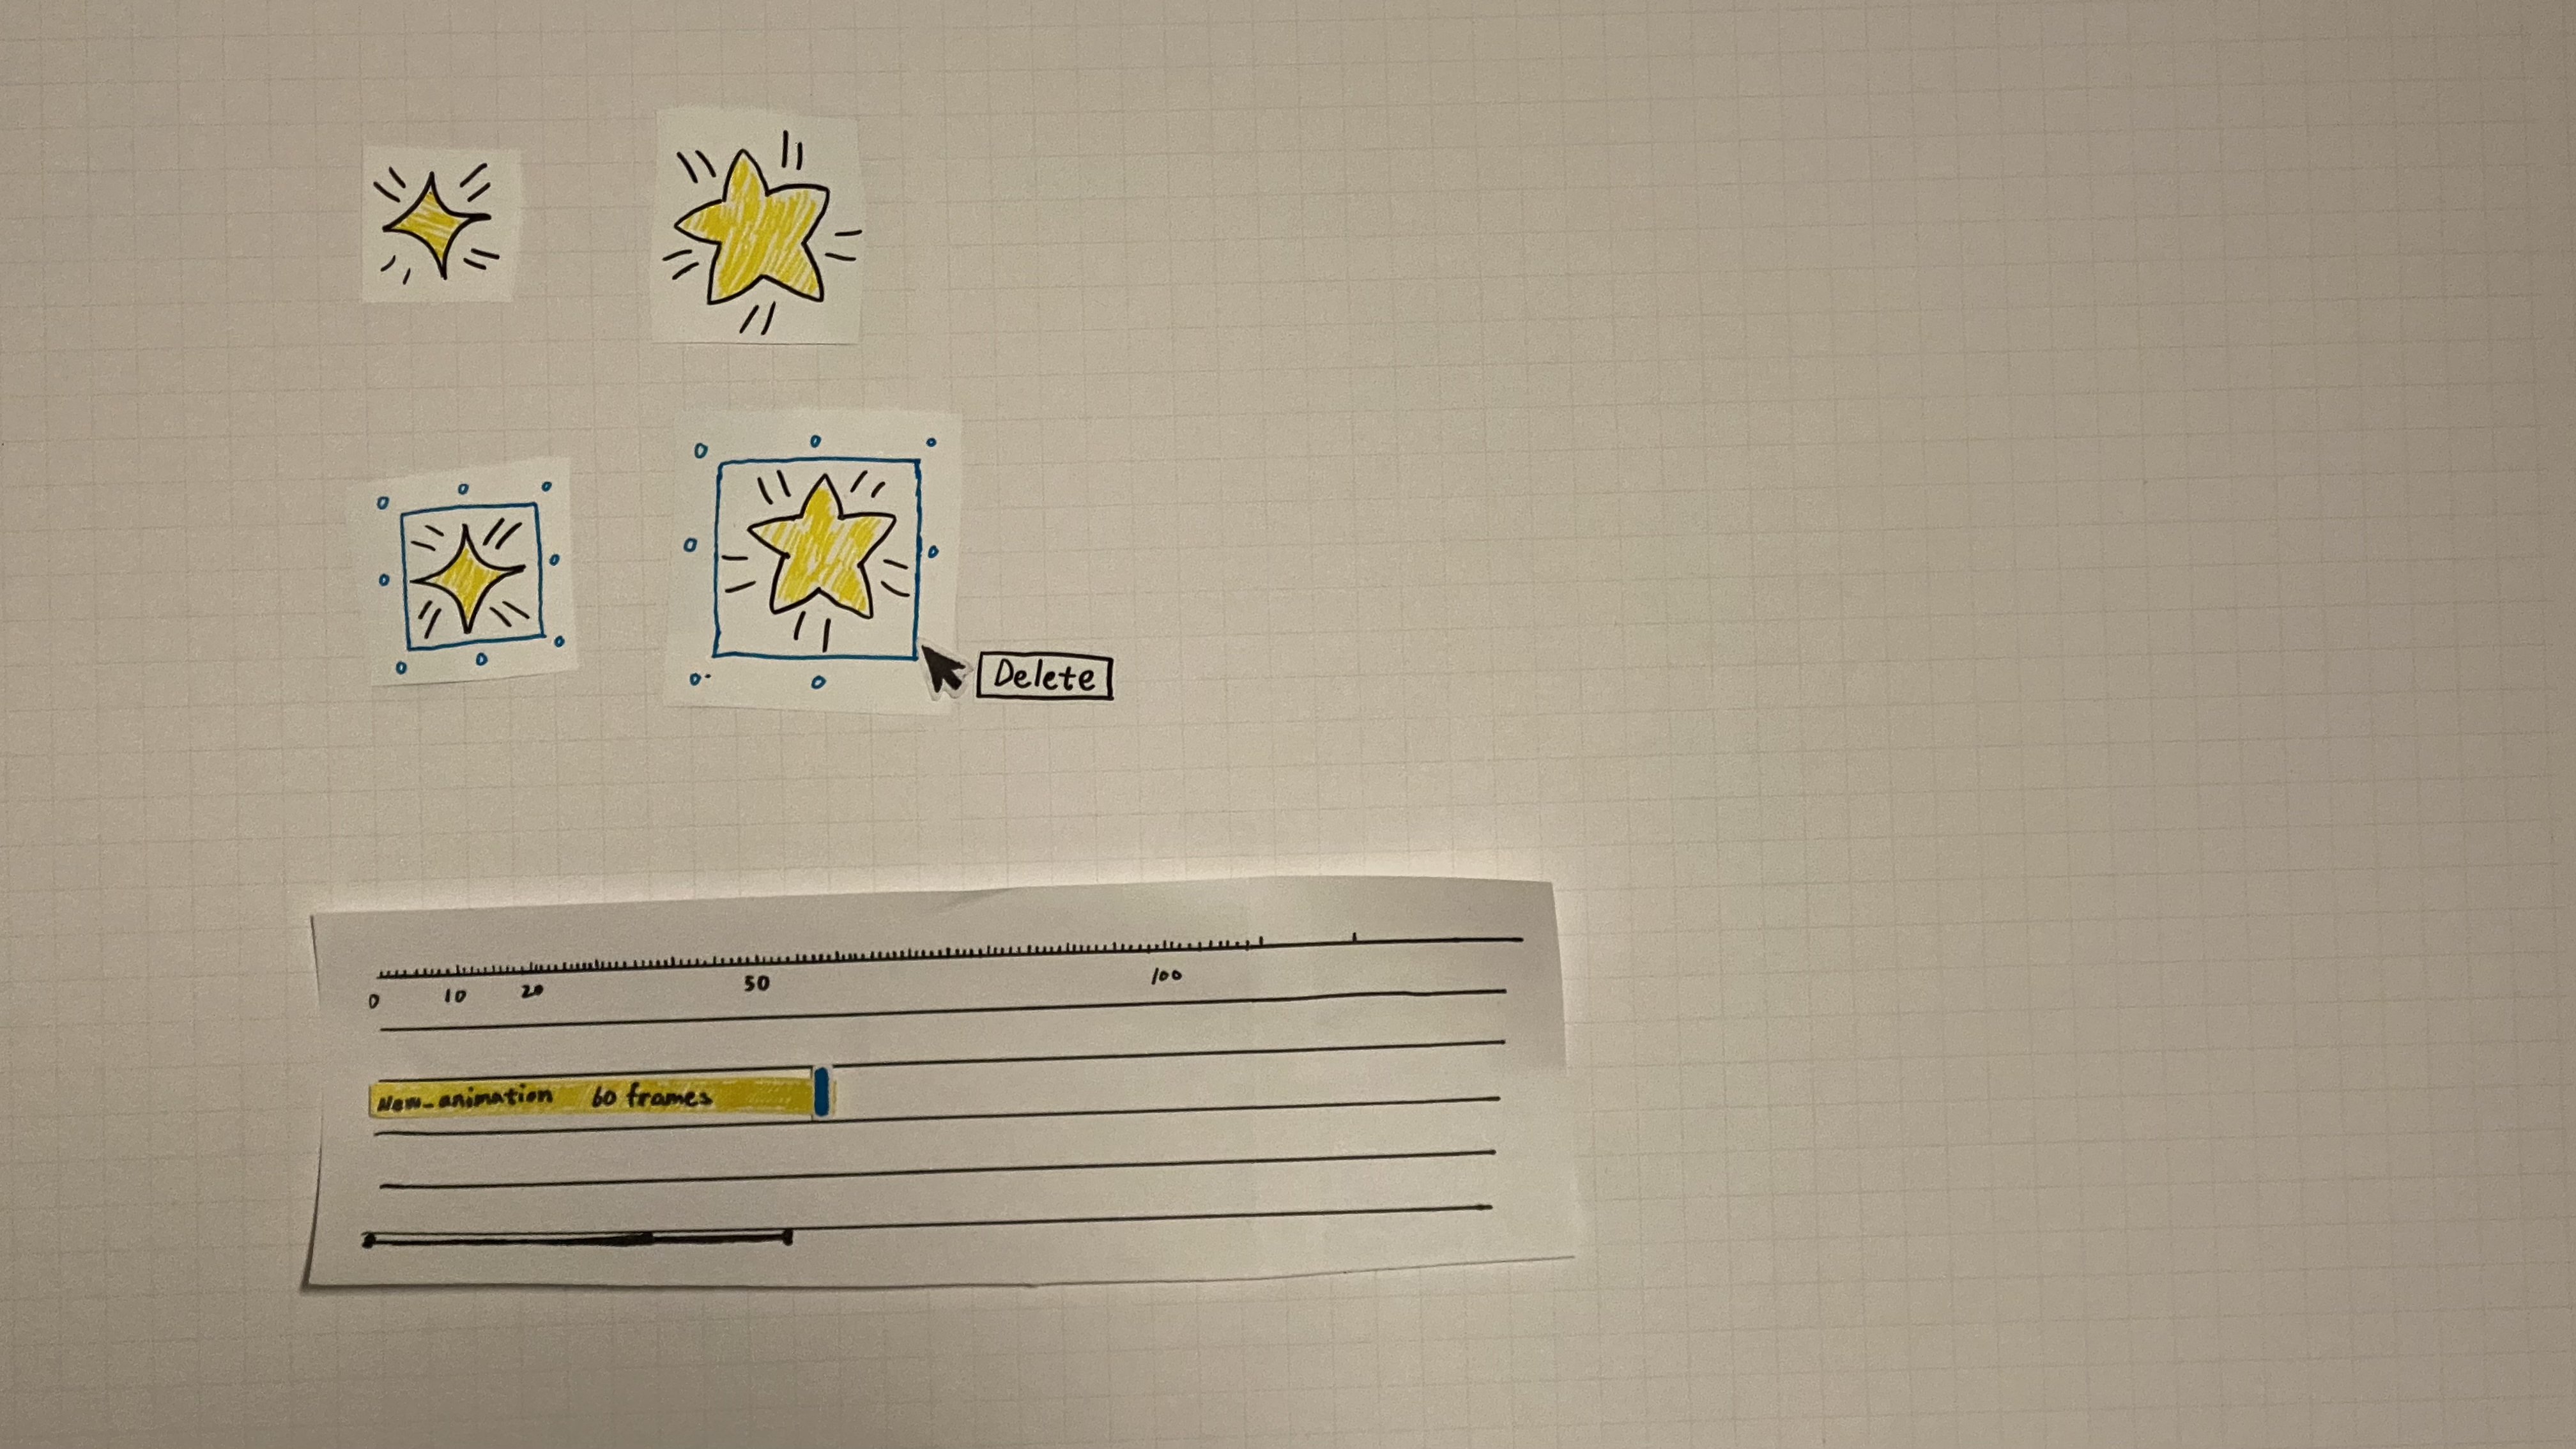 Delete
0 10 20 50 100
New_animation 60 frames